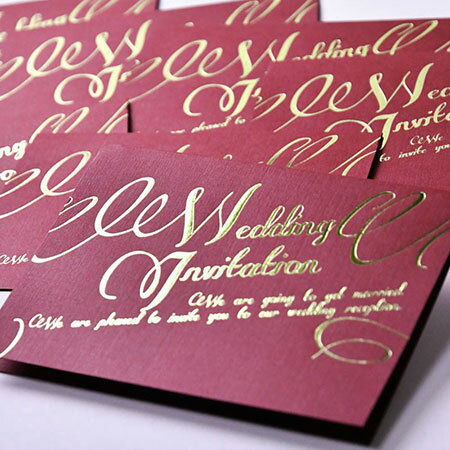 Wedding
Invitation
We are going to get married.
We are pleased to invite you to our wedding reception.
Wedding
Invitation
We are pleased to
We
to invite you